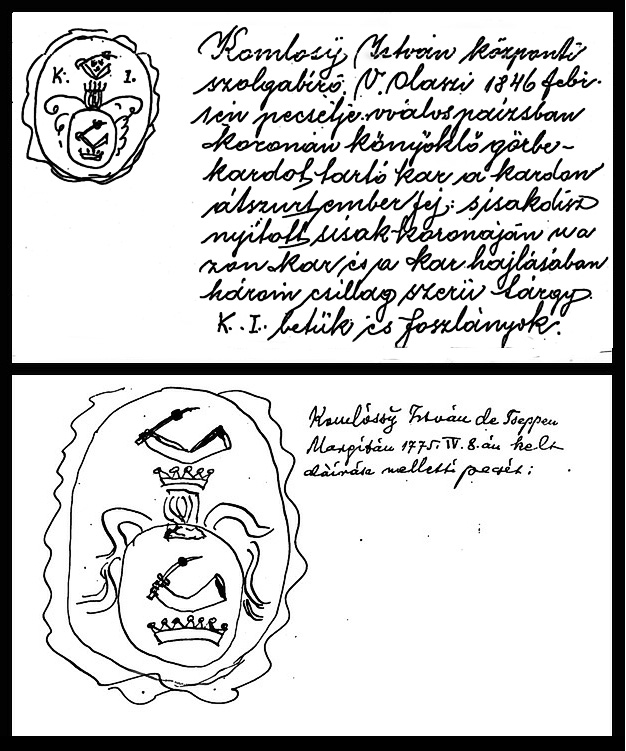 K. I.
Komlósÿ István központi
szolgabíró. V. Olaszi 1846 febr.
iein pecsétje: oválos paizsban
koronán könyöklő görbe-
kardot tartó kar a kardon
átszurt ember fej: sisakdísz
nyitott sisak koronáján u a
zon kar és a kar hajlásában
három csillag szerű tárgy.
K. I. betük és foszlányok.
Komlóssÿ István de Tseppen
Margitán 1775. IV. 8.án kelt
aláirása melletti pecsét: